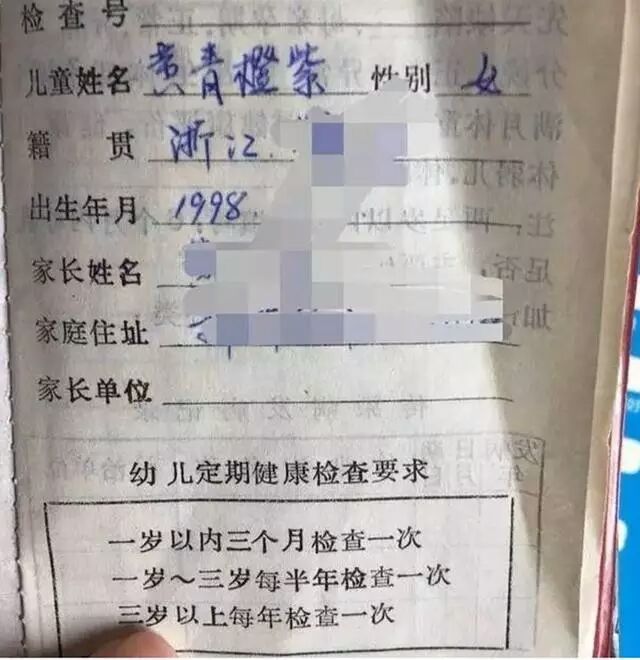 检查号
儿童姓名 黄青橙紫 性别 女
籍贯 浙江
出生年月 1998
家长姓名
家庭住址
家长单位
幼儿定期健康检查要求
一岁以内三个月检查一次
一岁～三岁每半年检查一次
三岁以上每年检查一次